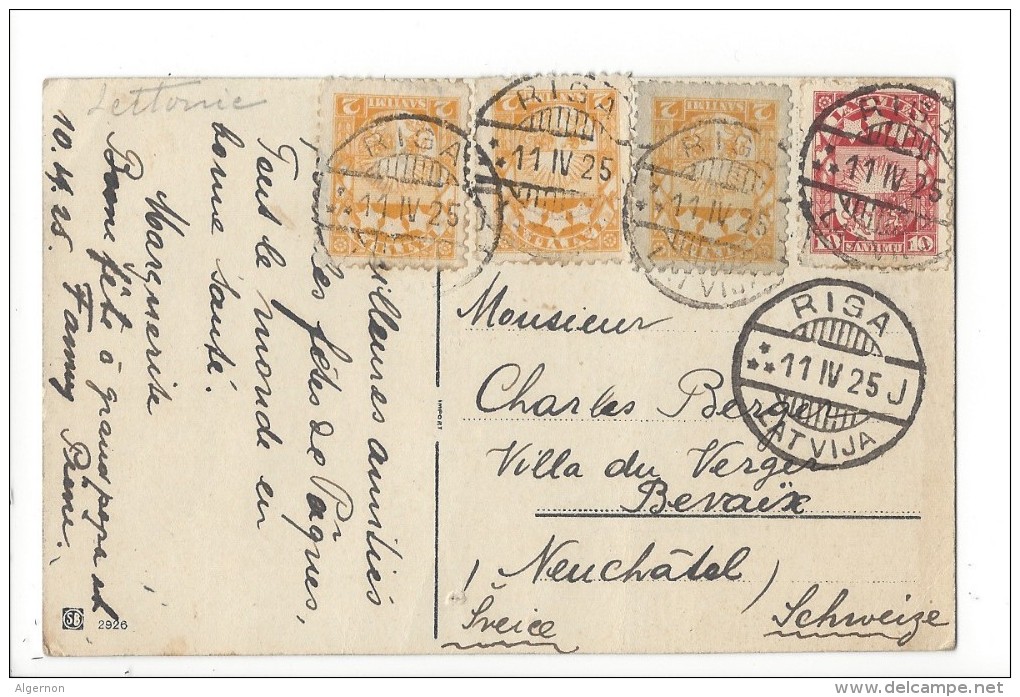 Lettonie
2 SANTIMI 2
LATVIJA
2 SANTIMI 2
LATVIJA
2 SANTIMI 2
LATVIJA
LATVIJA
10 SANTIMU 10
RIGA
11 IV 25 J
RIGA
11 IV 25
RIGA
11 IV 25
LATVIJA
RIGA
11 IV 25
RIGA
11 IV 25 J
LATVIJA
Meilleures amitiés
fêtes de Pâques,
Tout le monde en
bonne santé.
Marguerite
Bonne fête à grand papa et
10. 4. 25. Fanny
IMPORT
Monsieur
Charles Berger
Villa du Verger
Bevaix
(Neuchâtel)
Šveice
Schweize
SB 2926
Algernon
www.delcampe.net